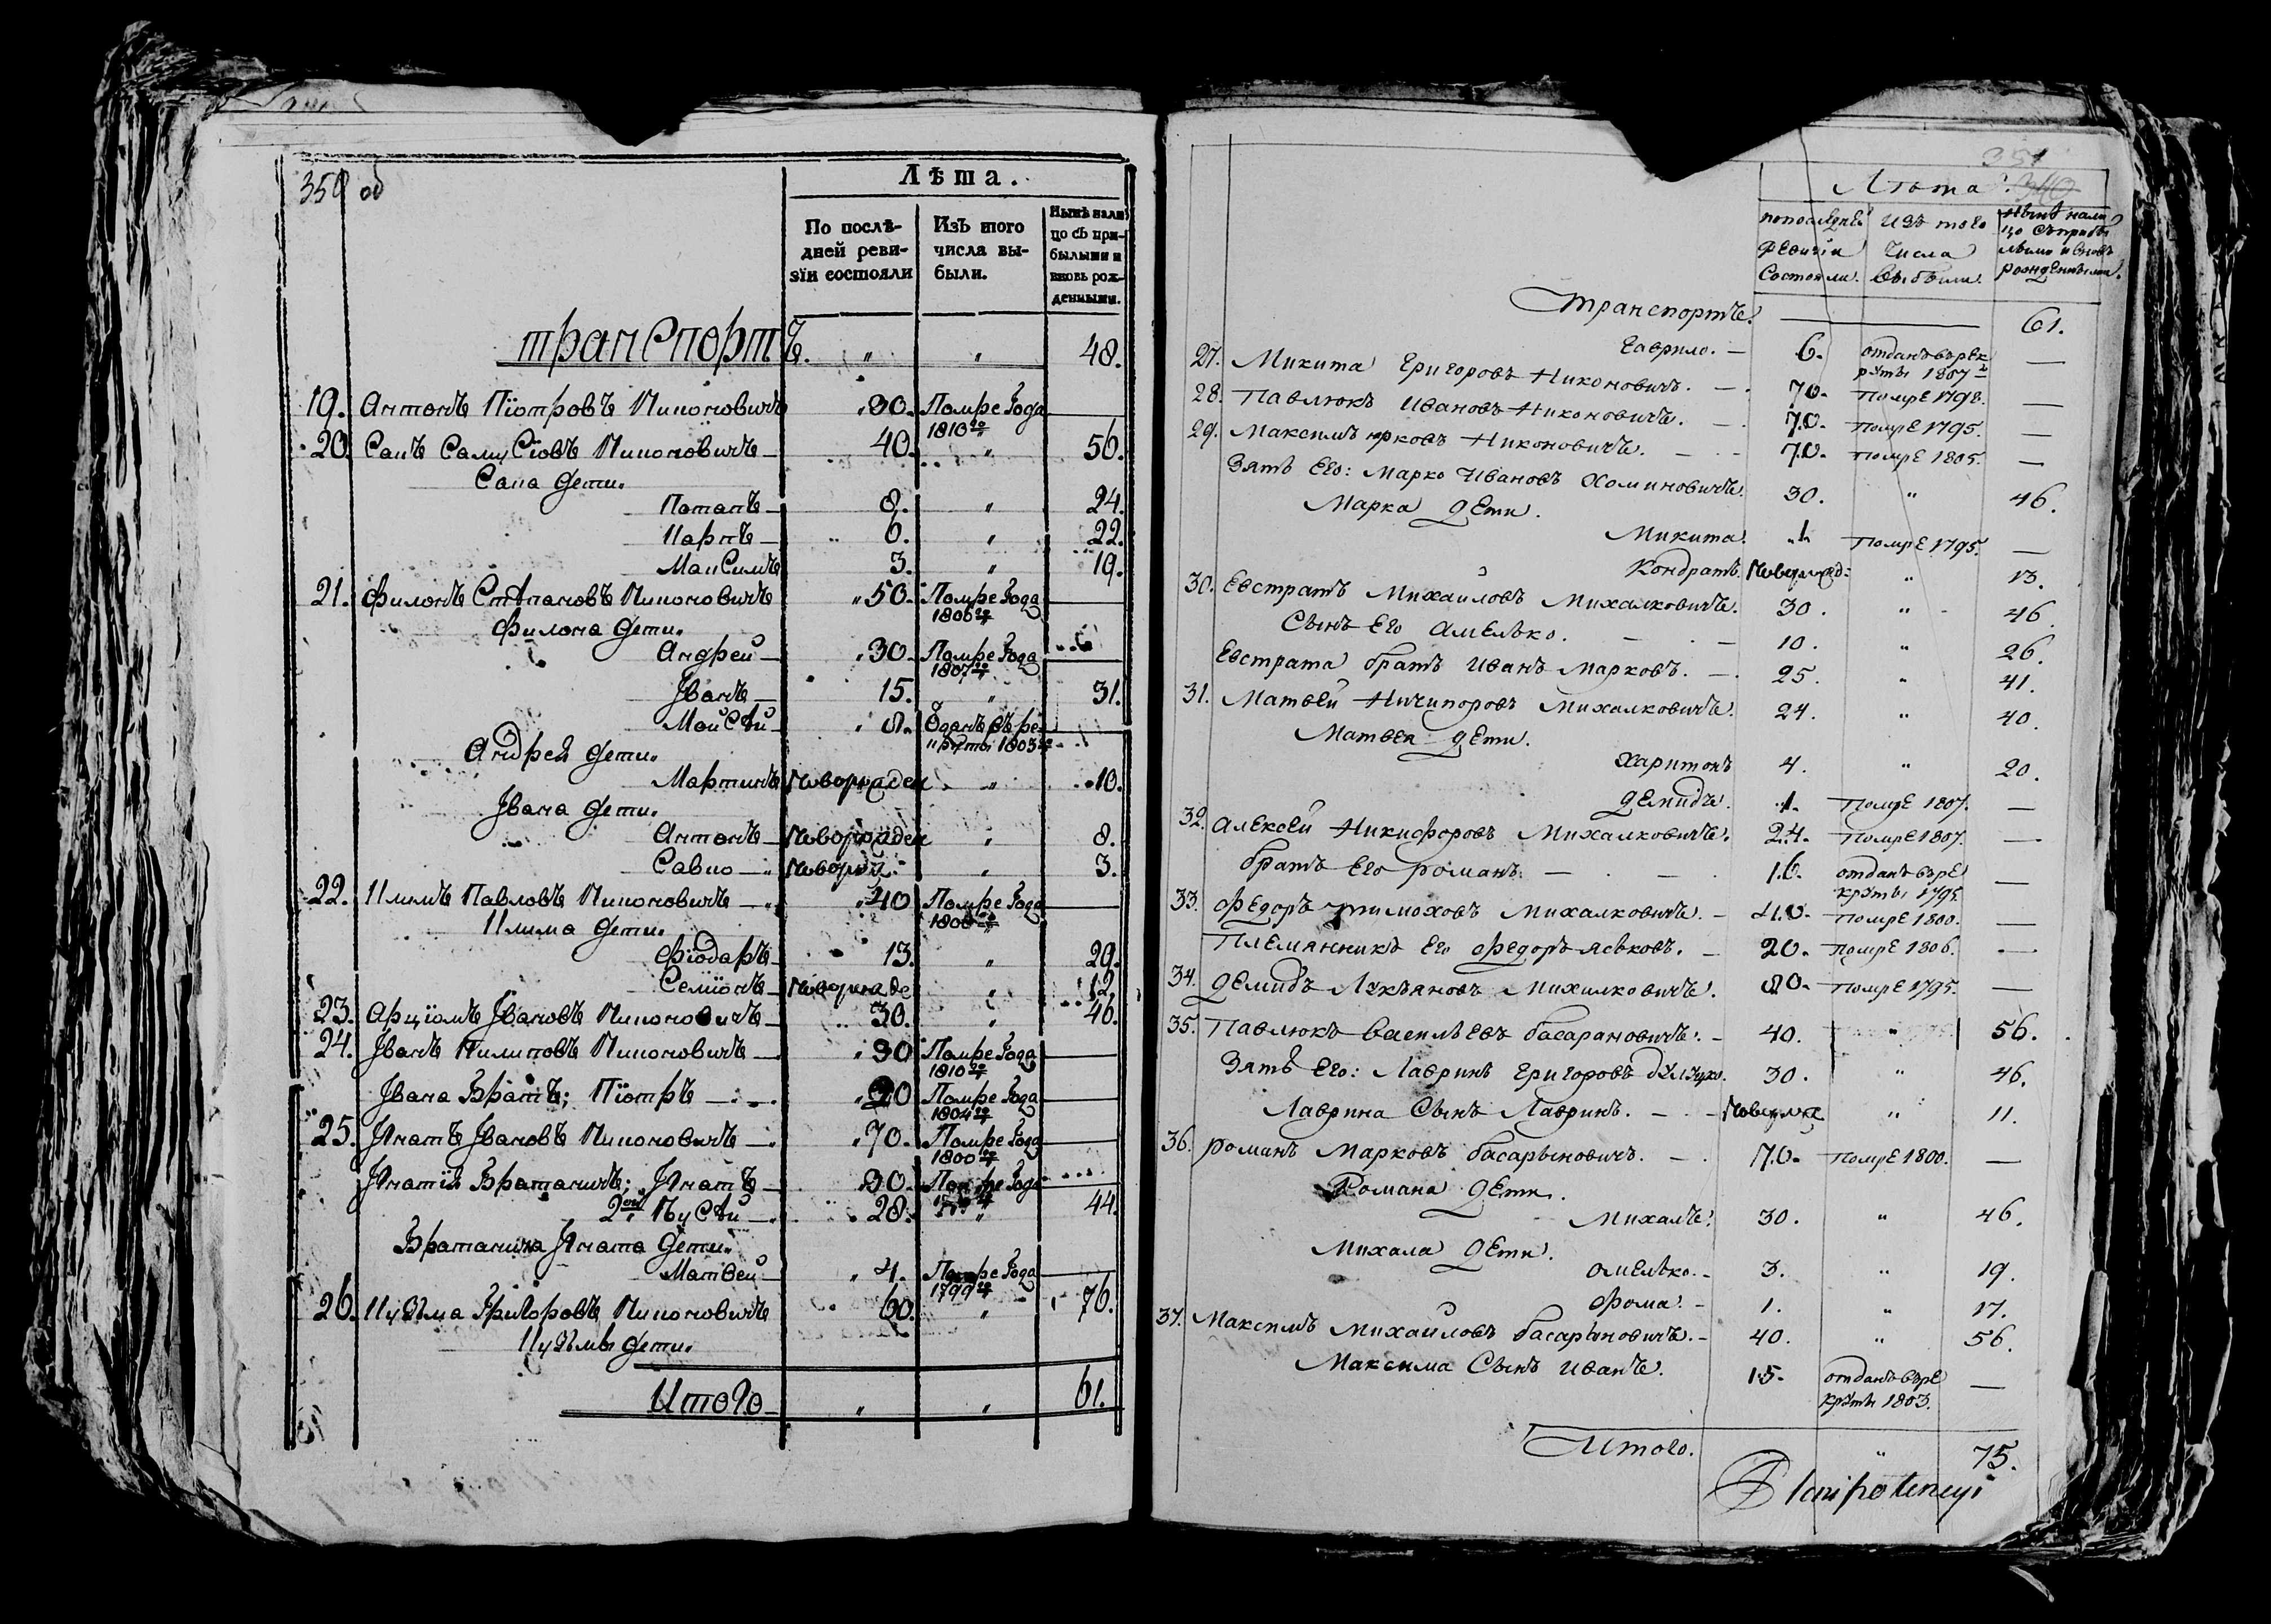 350 об
Лѣта.
По послѣдней ревизїи состояли
Изъ того числа выбыли.
Нынѣ налицо съ прибылыми и вновь рожденными.
транспортъ. „ „ 48.
19. Антонъ Пїотровъ Никоновичъ 30. Помре Года 1810го —
20. Сакъ СамуСїовъ Никоновичъ 40. „ 56.
Сака дети.
Потапъ 8. „ 24.
Карпъ 6. „ 22.
МакСимъ 3. „ 19.
21. Филонъ Степановъ Никоновичъ 50. Помре Года 1806го —
Филона дети.
Андрей 30. Помре Года 1807го —
Іванъ 15. „ 31.
МойСѣй 8. Ѿданъ въ рекруты 1803го —
Андрея дети.
Мартинъ Неворожден „ 10.
Івана дети.
Антонъ Неворожден „ 8.
Савко Неворож: „ 3.
22. Климъ Павловъ Никоновичъ 40 Помре Года —
Клима дети.
Фїодаръ 13. „ 29.
Семїонъ Неворожде „ 12.
23. Арцїомъ Івановъ Никоновичъ 30. „ 46.
24. Іванъ Пилиповъ Никоновичъ 30 Помре Года 1810го —
Івана Братъ; Пїотръ 20 Помре Года 1804го —
25. Ігнатъ Івановъ Никоновичъ 70. Помре Года 1800го —
Ігнатїя Братаничъ; Ігнатъ 30. Помре Года —
2ой 28. „ 44.
Братанича Ігната дети.
Матвей 4. Помре Года 1799го —
26. Кузьма Григоровъ Никоновичъ 60. „ 76.
Кузьмы дети.
Итого „ „ 61.
351
Лѣта.
попоследней ревизїи Состояли.
изъ того числа выбыли.
Нынѣ налицо съприбылыми и вновь рожденными.
транспортъ. — 61.
Гаврило. — 6. отданъ върекруты 1807го —
27. Микита Григоровъ Никоновичъ. — 70. помре 1798. —
28. Павлюкъ Ивановъ Никоновичъ. — 70. помре 1795. —
29. Максимъ юрковъ Никоновичъ. — 70. помре 1805. —
Зять его: Марко Ивановъ Хоминовичъ. 30. „ 46.
Марка дети.
Микита. 1. помре 1795. —
Кондратъ. „ 13.
30. Евстратъ Михайловъ Михалковичъ. 30. „ 46.
Сынъ его Амелько. — 10. „ 26.
Евстрата братъ Иванъ Марковъ. — 25. „ 41.
31. Матвей Ничипоровъ Михалковичъ. 24. „ 40.
Матвея дети.
Харитонъ 4. „ 20.
демидъ. 1. помре 1807. —
32. Алексей Никифоровъ Михалковичъ. 24. помре 1807. —
братъ его романъ. — 16. отданъ върекруты 1795. —
33. Федоръ тимоховъ Михалковичъ. — 40. помре 1800. —
племянникъ его Федоръ яськовъ. — 20. помре 1806. —
34. демидъ Лукьяновъ Михалковичъ. 80. помре 1795. —
35. Павлюкъ Васильевъ басарановичъ. — 40. „ 56.
Зять его: Лавринъ Григоровъ 30. „ 46.
Лаврина Сынъ Лавринъ. — „ 11.
36. романъ Марковъ басарыновичъ. — 70. помре 1800. —
Романа дети.
Михалъ. 30. „ 46.
Михала дети.
омелько. — 3. „ 19.
Фома. — 1. „ 17.
37. Максимъ Михайловъ басарыновичъ. — 40. „ 56.
Максима Сынъ Иванъ. 15. отданъ върекруты 1803. —
Итого. „ 75.